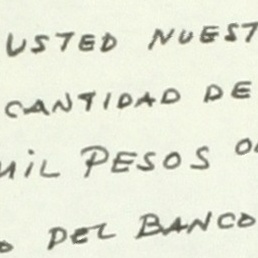 USTED NUEST
CANTIDAD DE
MIL PESOS O
O DEL BANCO